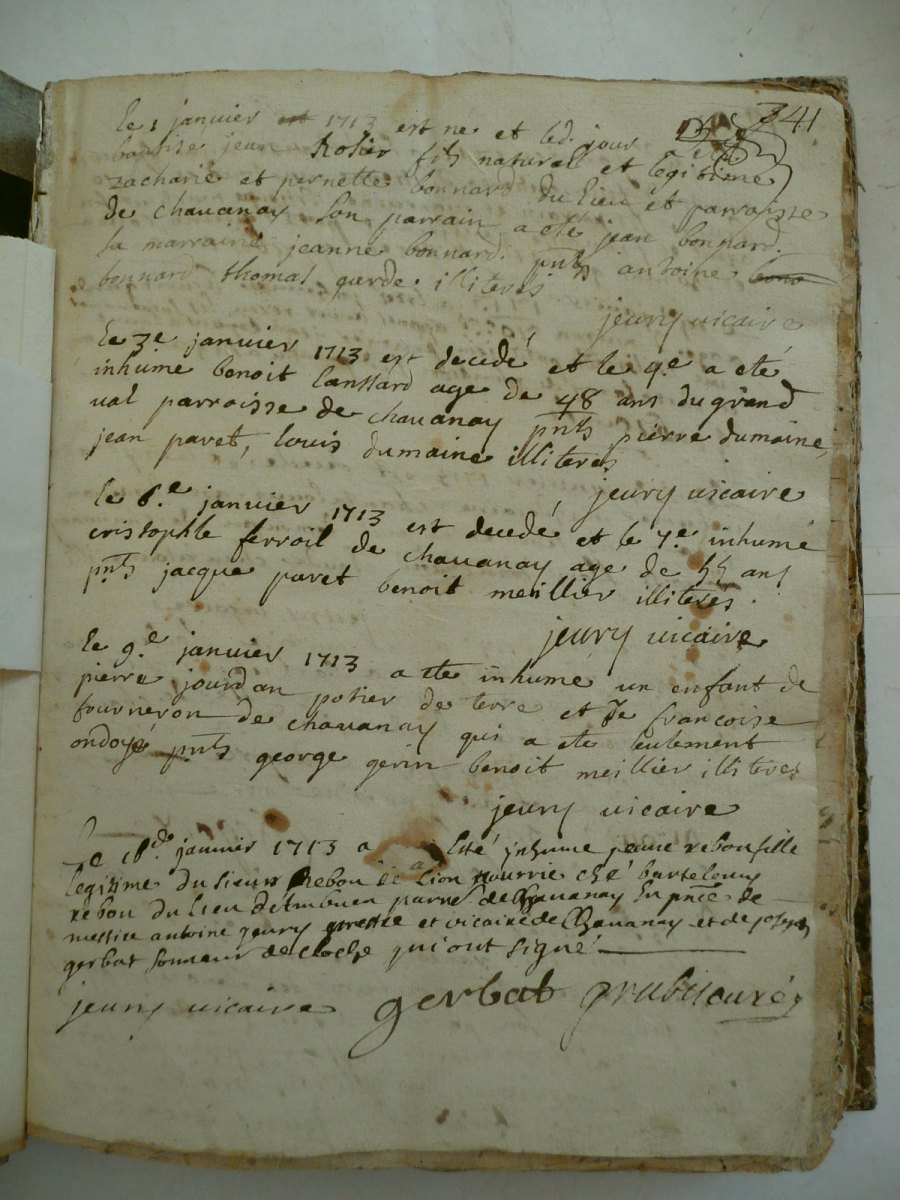 341
le 1 janvier est 1713 est né et led. jour
baptisé jean Rosier fils naturell et legitime
zacharie et pernette bonnard du lieu et parroisse
de chavanay son parrain a eté jean bonnard.
sa marraine jeanne bonnard. pnts antoine bono
bonnard thomas garde illiteres
jeury vicaire
le 3e janvier 1713 est decedé et le 4e a eté
inhume benoit age de 48 ans du grand
val parroisse de chavanay pnts pierre dumaine,
jean pavet, louis dumaine illiteres
jeury vicaire
le 6.e janvier 1713 est decedé et le 7e inhumé
cristophle ferroil de chavanay age de 55 ans
pnts jacque pavet benoit meillier illiteres.
jeury vicaire
le 9.e janvier 1713 a ete inhume un enfant de
pierre jourdan potier de terre et de francoise
fourneron de chavanay qui a ete seulement
ondoyé pnts george gerin benoit meillier illiteres
jeury vicaire
Le 18de janvier 1713 a a Esté inhume jeane rebou fille
legitime du sieur Rebou de Lion nourrie ché barteleny
rebou du lieu parne de Chavanay En pnce de
messire antoine jeury prestre et vicaire de Chavanay et de joseph
gerbat sonneur de cloche qui ont signé
jeury vicaire gerbat curé